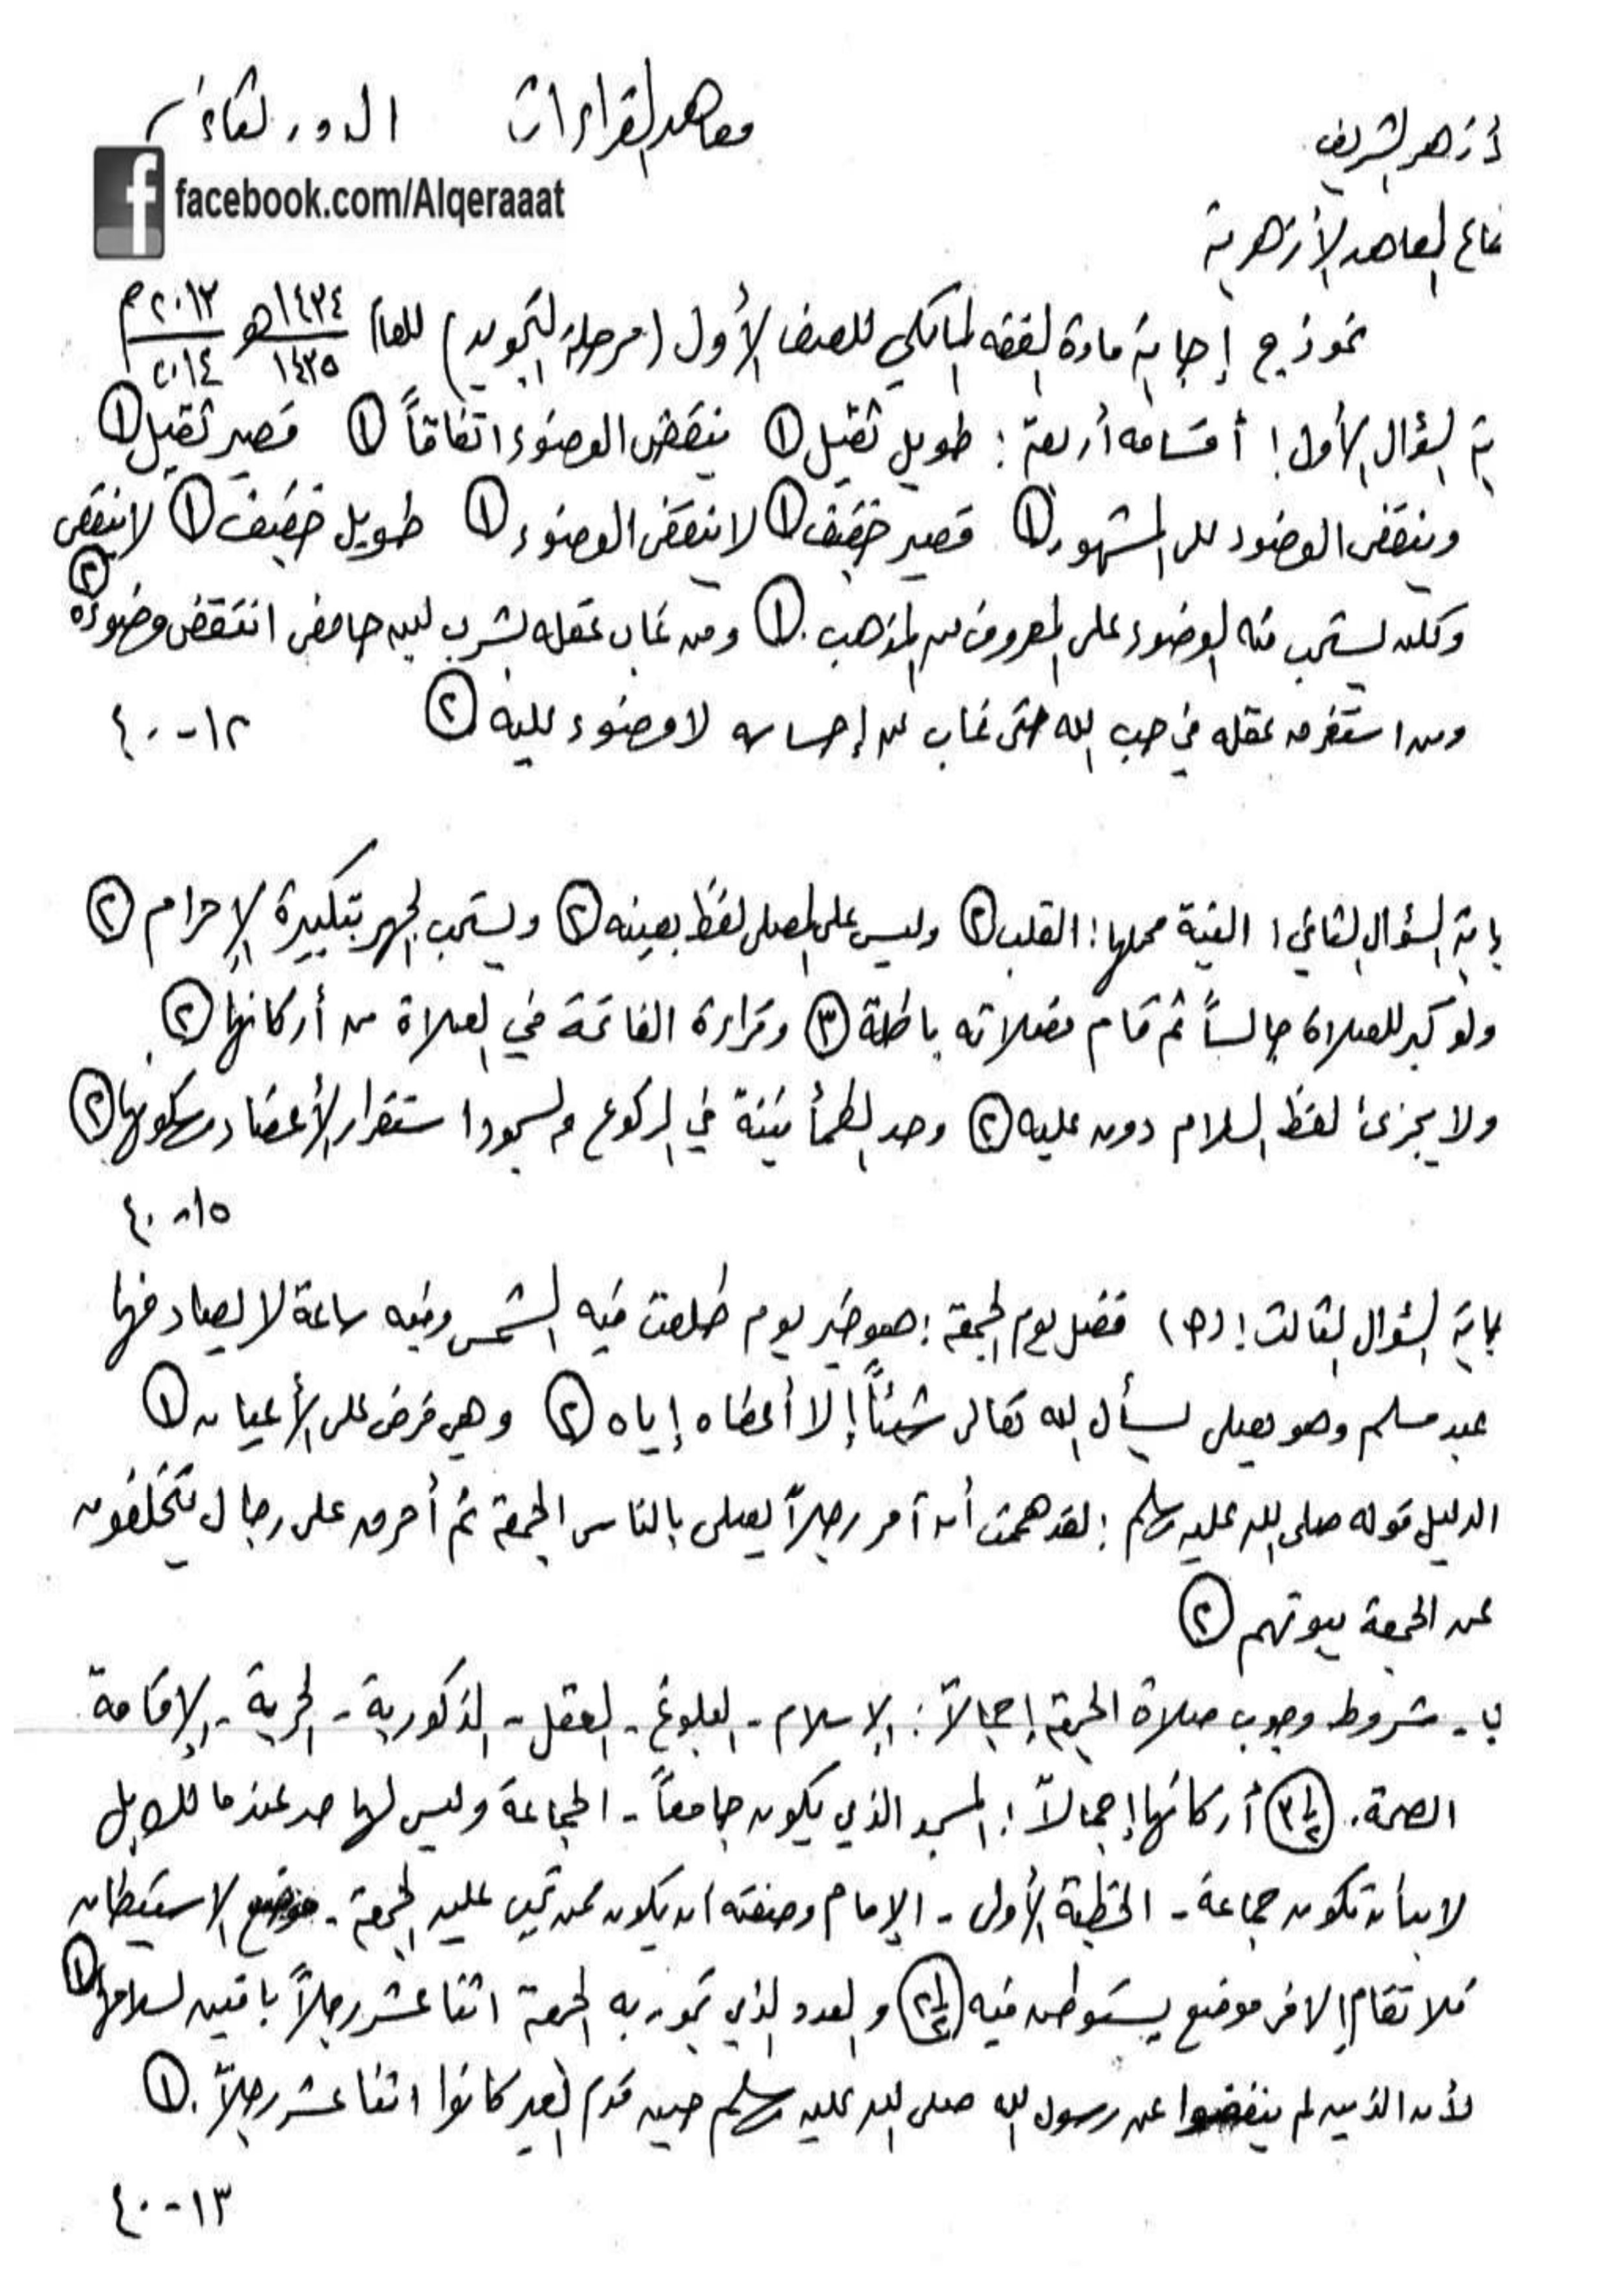 الأزهر الشريف معاهد القراءات الدور الثاني
facebook.com/Alqeraaat
قطاع المعاهد الأزهرية
نموذج إجابة مادة الفقه المالكي للصف الأول (مرحلة التجويد) للعام ١٤٣٤/١٤٣٥ هـ ٢٠١٣/٢٠١٤ م
بة السؤال الأول: أقسامه أربعة: طويل ثقيل (١) ينقض الوضوء اتفاقاً (١) قصير ثقيل (١)
وينقض الوضوء على المشهور (١) قصير خفيف (١) لا ينقض الوضوء (١) طويل خفيف (١) لا ينقض
ولكن يستحب منه الوضوء على المعروف من المذهب. (١) ومن غاب عقله بشرب لبن حامض انتقض وضوءه (٢)
ومن استغرق عقله في حب الله حتى غاب عن إحساسه لا وضوء عليه (٢) ١٢-٤٠
إجابة السؤال الثاني: النية محلها: القلب (٢) وليس على المصلي لفظ بعينه (٢) ويستحب الجهر بتكبيرة الإحرام (٢)
ولو كبر للصلاة جالساً ثم قام فصلاته باطلة (٣) وقراءة الفاتحة في الصلاة من أركانها (٢)
ولا يجزئ لفظ السلام دون عليه (٢) وحد الطمأنينة في الركوع والسجود استقرار الأعضاء وسكونها (٢)
١٥-٤٠
إجابة السؤال الثالث: (أ) فضل يوم الجمعة: هو خير يوم طلعت فيه الشمس وفيه ساعة لا يصادفها
عبد مسلم وهو يصلى يسأل الله تعالى شيئاً إلا أعطاه إياه (٢) وهي فرض على الأعيان (١)
الدليل قوله صلى الله عليه وسلم: لقد هممت أن آمر رجلاً يصلى بالناس الجمعة ثم أحرق على رجال يتخلفون
عن الجمعة بيوتهم (٢)
ب - شروط وجوب صلاة الجمعة إجمالاً: الإسلام - البلوغ - العقل - الذكورية - الحرية - الإقامة
الصحة. (٣ ١/٢) أركانها إجمالاً: المسجد الذي يكون جامعاً - الجماعة وليس لها حد عند مالك بل
لا بد أن تكون جماعة - الخطبة الأولى - الإمام وصفته أن يكون ممن تجب عليه الجمعة - موضع الاستيطان
فلا تقام إلا في موضع يستوطن فيه (٢ ١/٢) والعدد الذي تجوز به الجمعة اثنا عشر رجلاً باقين لسلامها (١)
لأن الذين لم ينفضوا عن رسول الله صلى الله عليه وسلم حين قدم العير كانوا اثنا عشر رجلاً. (١)
١٣-٤٠